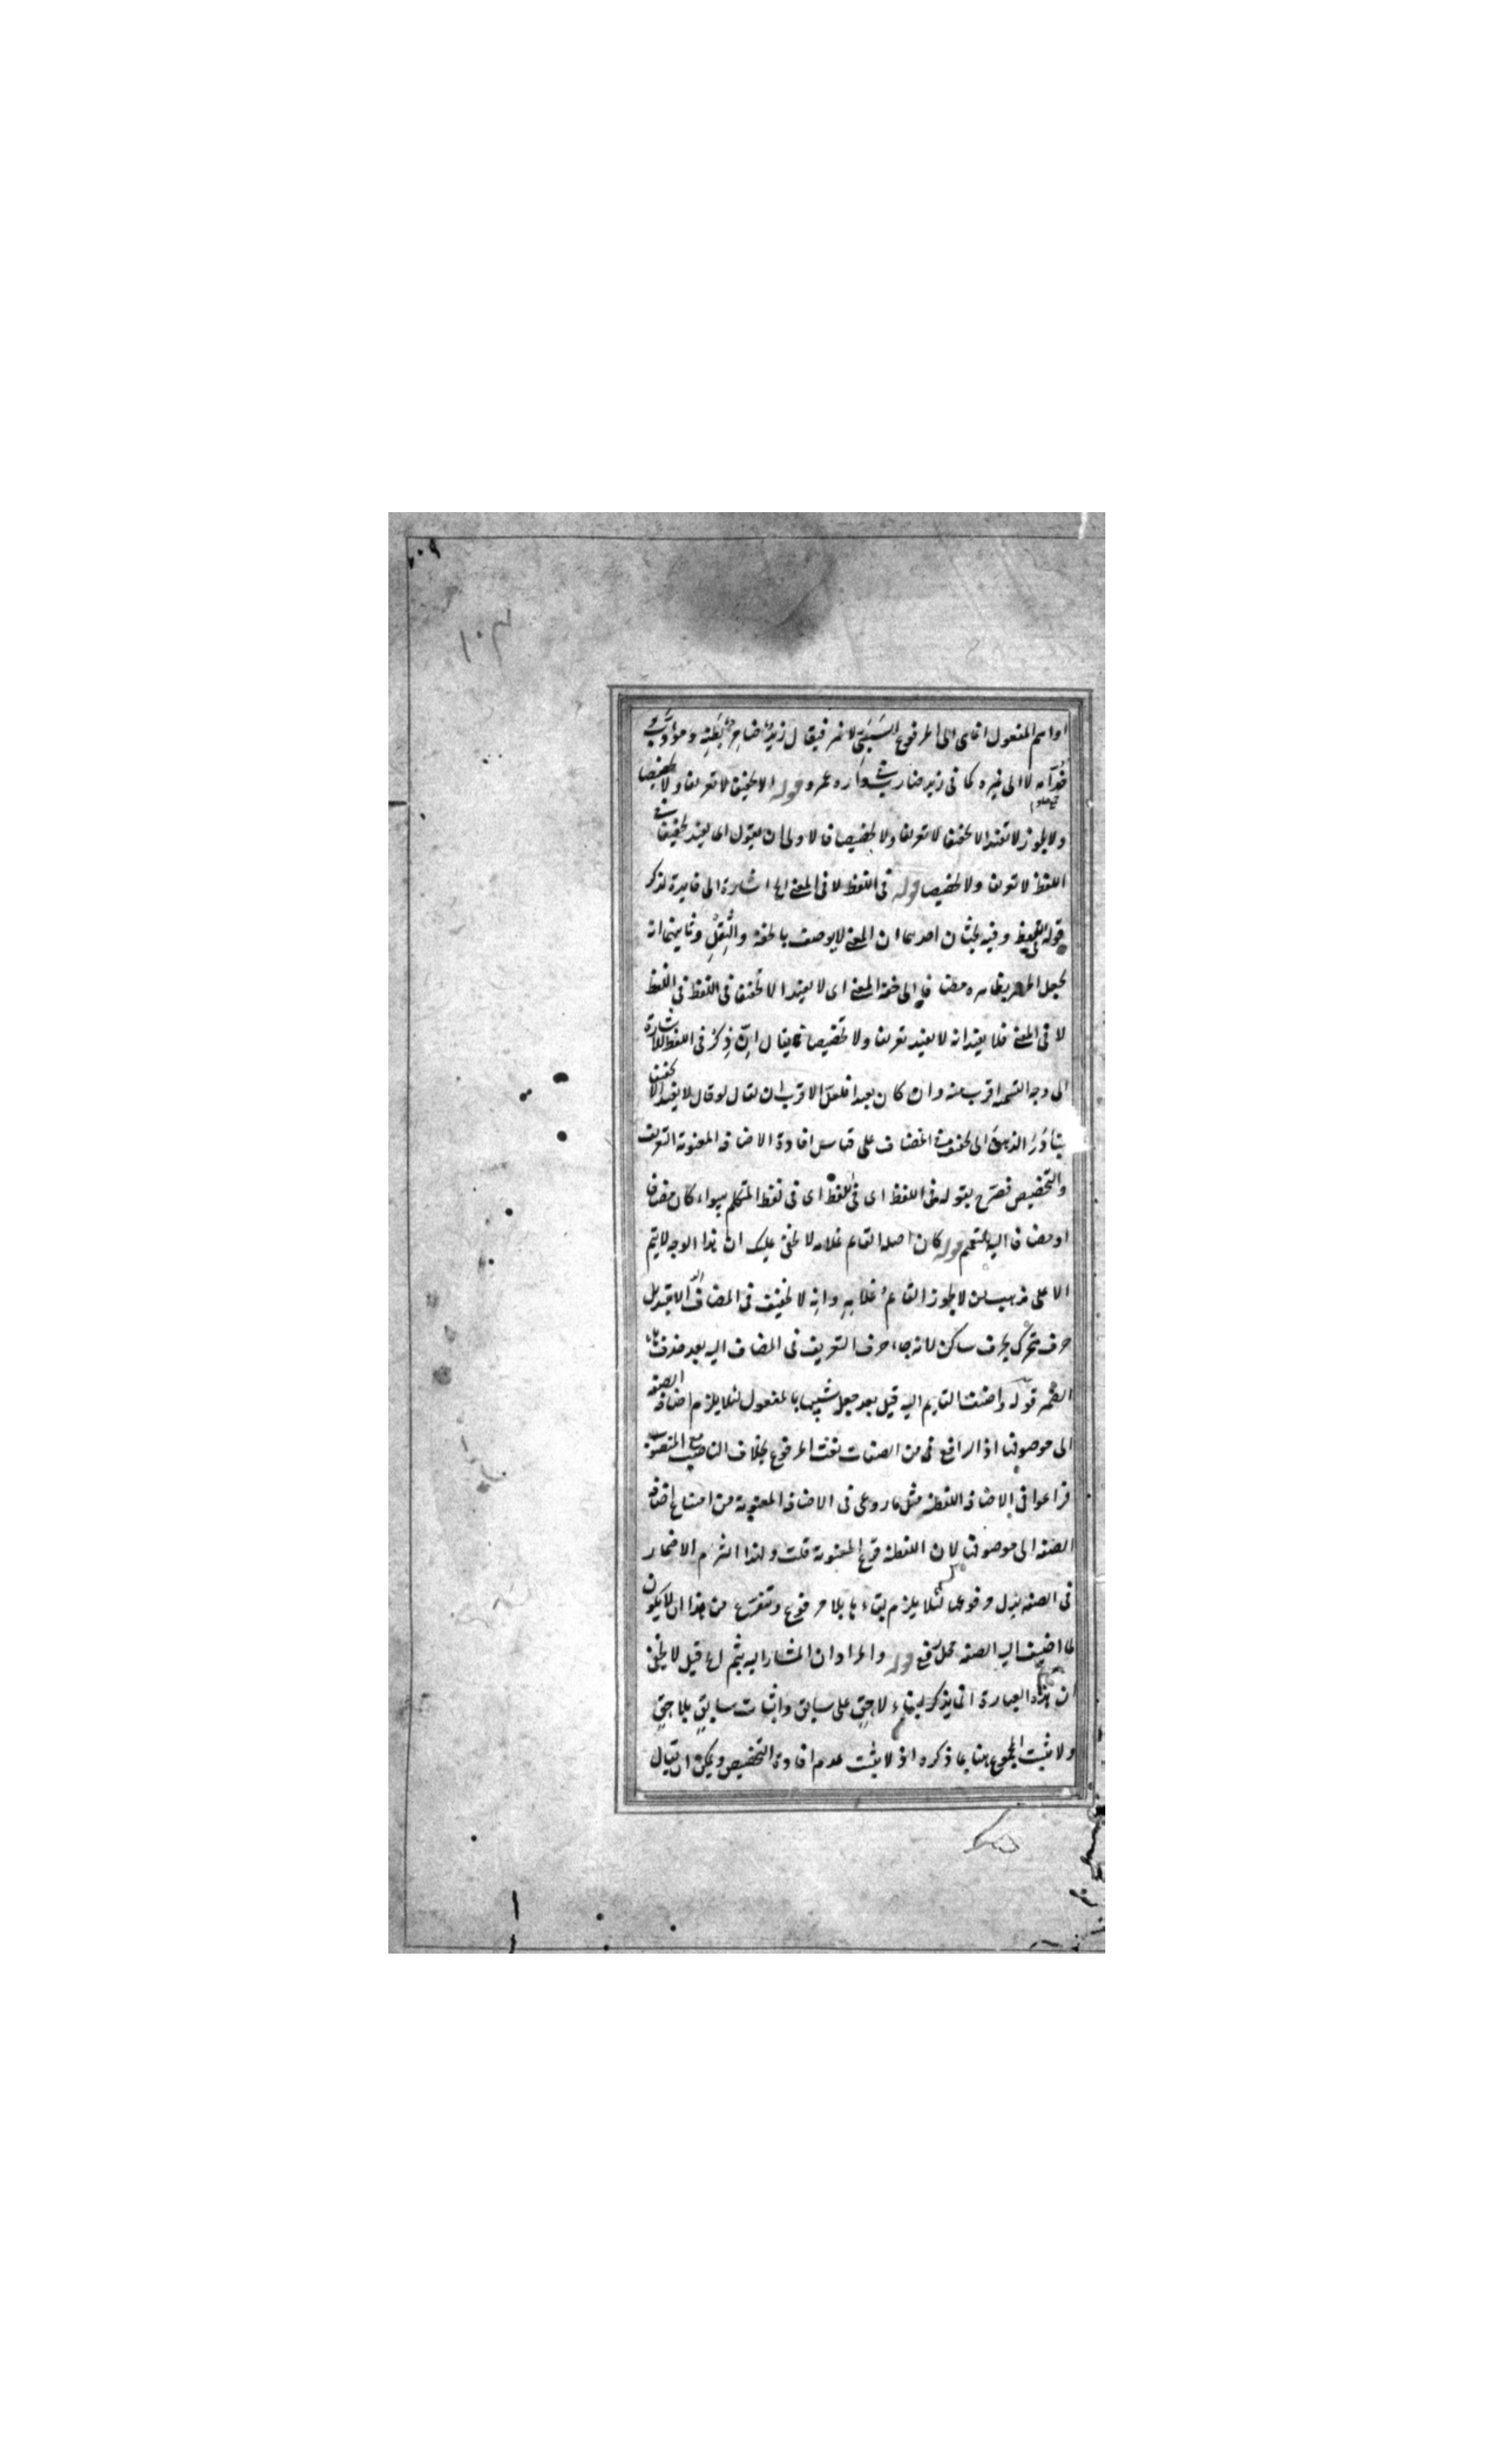 ٢٠٩
١٠٣
او اسم المفعول انما هى الى المرفوع السَبَبِى لا غير فيقال زيدٌ ضامرُ بَطنِه ومؤدَّبُ
خُدّامه لا الى غيره كما فى زيد ضارب فى داره عمرو قوله الا تخفيفا لا تعريفا ولا تخصيصا
ولا يجوز لا تفيد الا تخفيفا لا تعريفا ولا تخصيصا فالاولى ان يقول اى يفيد تخفيفا فى
اللفظ لا تعريفا ولا تخصيصا قوله فى اللفظ لا فى المعنى اشارة الى فايدة لذكر
قوله فى اللفظ وفيه بحثان احدهما ان المعنى لا يوصف بالخفة والثِقَل وثانيهما انه
يجعل الى خفة المعنى اى لا يفيد الا تخفيفا فى اللفظ فى اللفظ
لا فى المعنى فلا يفيد انه لا يفيد تعريفا ولا تخصيصا فما يقال اِنّ ذِكرَ فى اللفظ للاشارة
الى وجه التسمية اقرب منه وان كان بعيدا فلعل الاقرب ان يقال لو قال لا يفيد الا تخفيفا
يتبادر الذهن الى تخفيف المضاف على قياس افادة الاضافة المعنوية التعريف
والتخصيص فصرّح بقوله فى اللفظ اى فى اللفظ اى فى لفظ المتكلم سواء كان مضافا
او مضافا اليه قوله كان اصله القايم غلامه لا يخفى عليك ان هذا الوجه لا يتم
الا على مذهب من لا يجوز القايمُ غلامِهِ وانه لا تخفيف فى المضاف اليه الا بتبديل
حرف متحرك بحرف ساكن لانه جاء حرف التعريف فى المضاف اليه بعد حذف هاء
الضمير قوله واضيف القايم اليه قيل بعد جعل شبيها بالمفعول لئلا يلزم اضافة الصفة
الى موصوفها اذ الرافع فى من الصفات نعت المرفوع بخلاف الناصب مع المنصوب
فراعوا فى الاضافة اللفظية مثل ما روعى فى الاضافة المعنوية من امتناع اضافة
الصفة الى موصوفها لان اللفظية فرع المعنوية قلت ولهذا التزم الاضمار
فى الصفة بدل مرفوعها لئلا يلزم بقاءها بلا مرفوع وتفرع من هذا ان لا يكون
لما اضيف اليه الصفة محل رفع قوله والمراد ان المشار اليه بثم قيل لا يخفى
ان هذه العبارة انما يذكر لبناء لاحِقٍ على سابق واثبات سابِقٍ بلاحِقٍ
ولا يثبت المجموع هنا بما ذكره اذ لا يثبت عدم افادة التخصيص ويمكن ان يقال